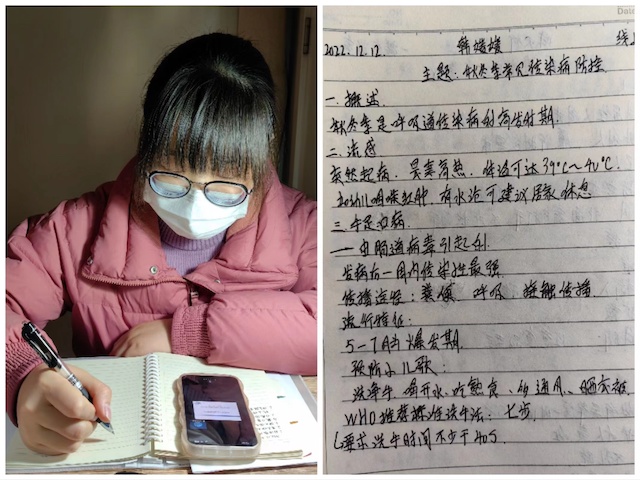 Date
2022.12.12.
主题:秋冬季常见传染病防控
一.概述.
秋冬季是呼吸道传染病的高发时期.
二.流感
突然起病.畏寒高热.体温可达39℃~40℃.
咽喉红肿.有水泡可建议居家休息
三.手足口病.
由肠道病毒引起的.
发病在一周内传染性最强
传播途径:粪便.呼吸.接触传播
流行特征:
5-7月为爆发期.
预防小儿歌:
洗净手.喝开水.吃熟食.勤通风.晒衣被.
WHO推荐洗手法:七步.
要求洗手时间不少于40s.